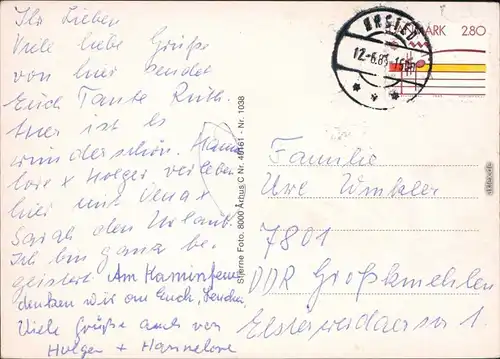 Ihr Lieben
Viele liebe Grüße
von hier sendet
Euch Tante Ruth.
Hier ist es
wunderschön. Hanne
lore + Holger verleben
hier mit Jena +
Sarah den Urlaub.
Ich bin ganz be-
geistert. Am Kaminfeuer
denken wir an Euch,
Viele Grüße auch von
Holger + Hannelore
Stjerne Foto. 8000 Århus C Nr. 40161 - Nr. 1038
DANMARK 2.80
12-6.85
Familie
Uwe Winkler
7801
DDR Großkmehlen
Elsterwerdaer str 1.